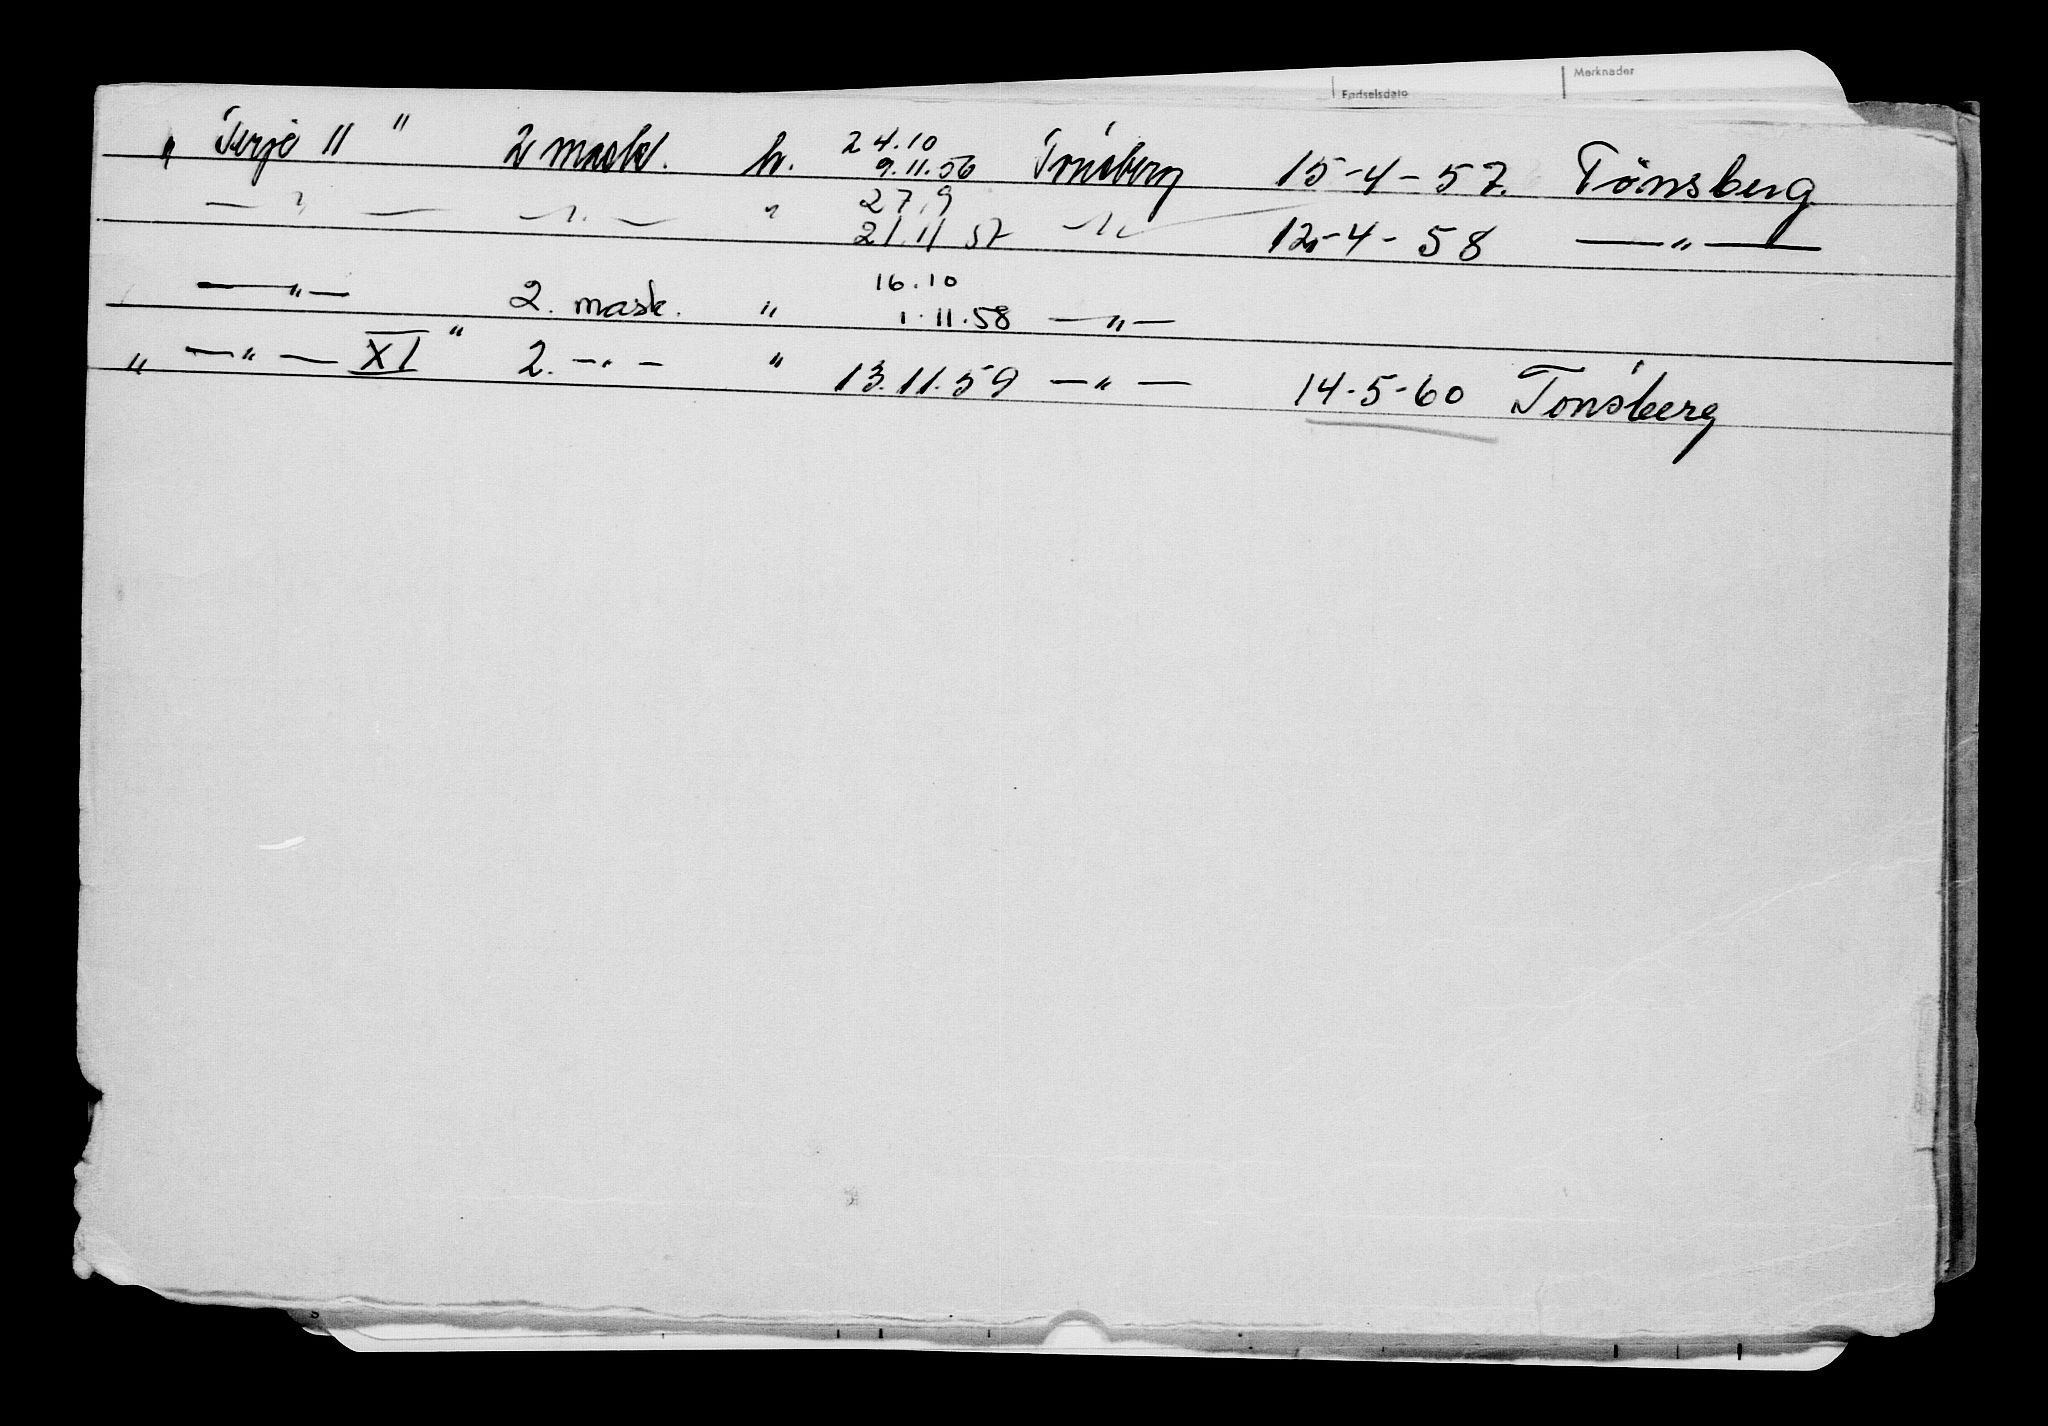 Merknader
Fødselsdato
" Terje 11 " 2 mask. hv. 24.10 9.11.56 Tønsberg 15-4-57. Tønsberg
— " — — " — " 27.9 21.11 57 — " — 12-4-58 — " —
— " — 2. mask. " 16.10 1.11.58 — " —
" — " — XI " 2. — " — " 13.11.59 — " — 14-5-60 Tønsberg